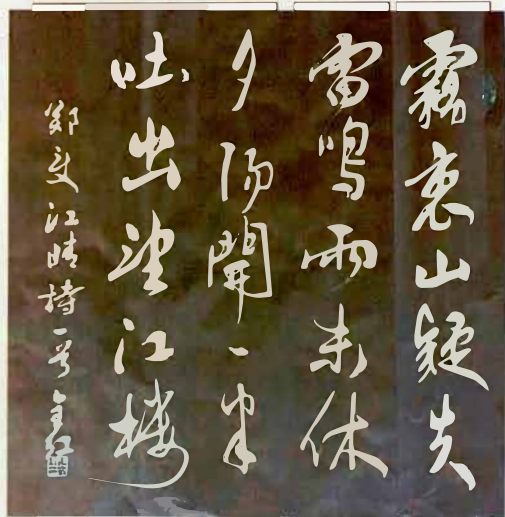 霧裹山疑失
雷鳴雨未休
夕陽開一半
吐出望江樓
鄭燮江晴詩一首